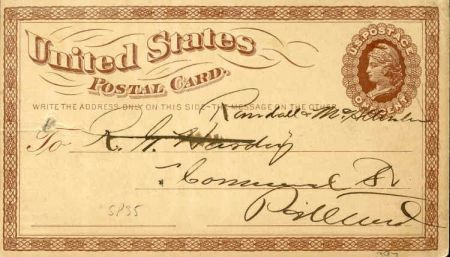 United States
POSTAL CARD.
U.S. POSTAGE
ONE CENT
WRITE THE ADDRESS ONLY ON THIS SIDE - THE MESSAGE ON THE OTHER
Randall &
To
Commercial St
Portland
5835